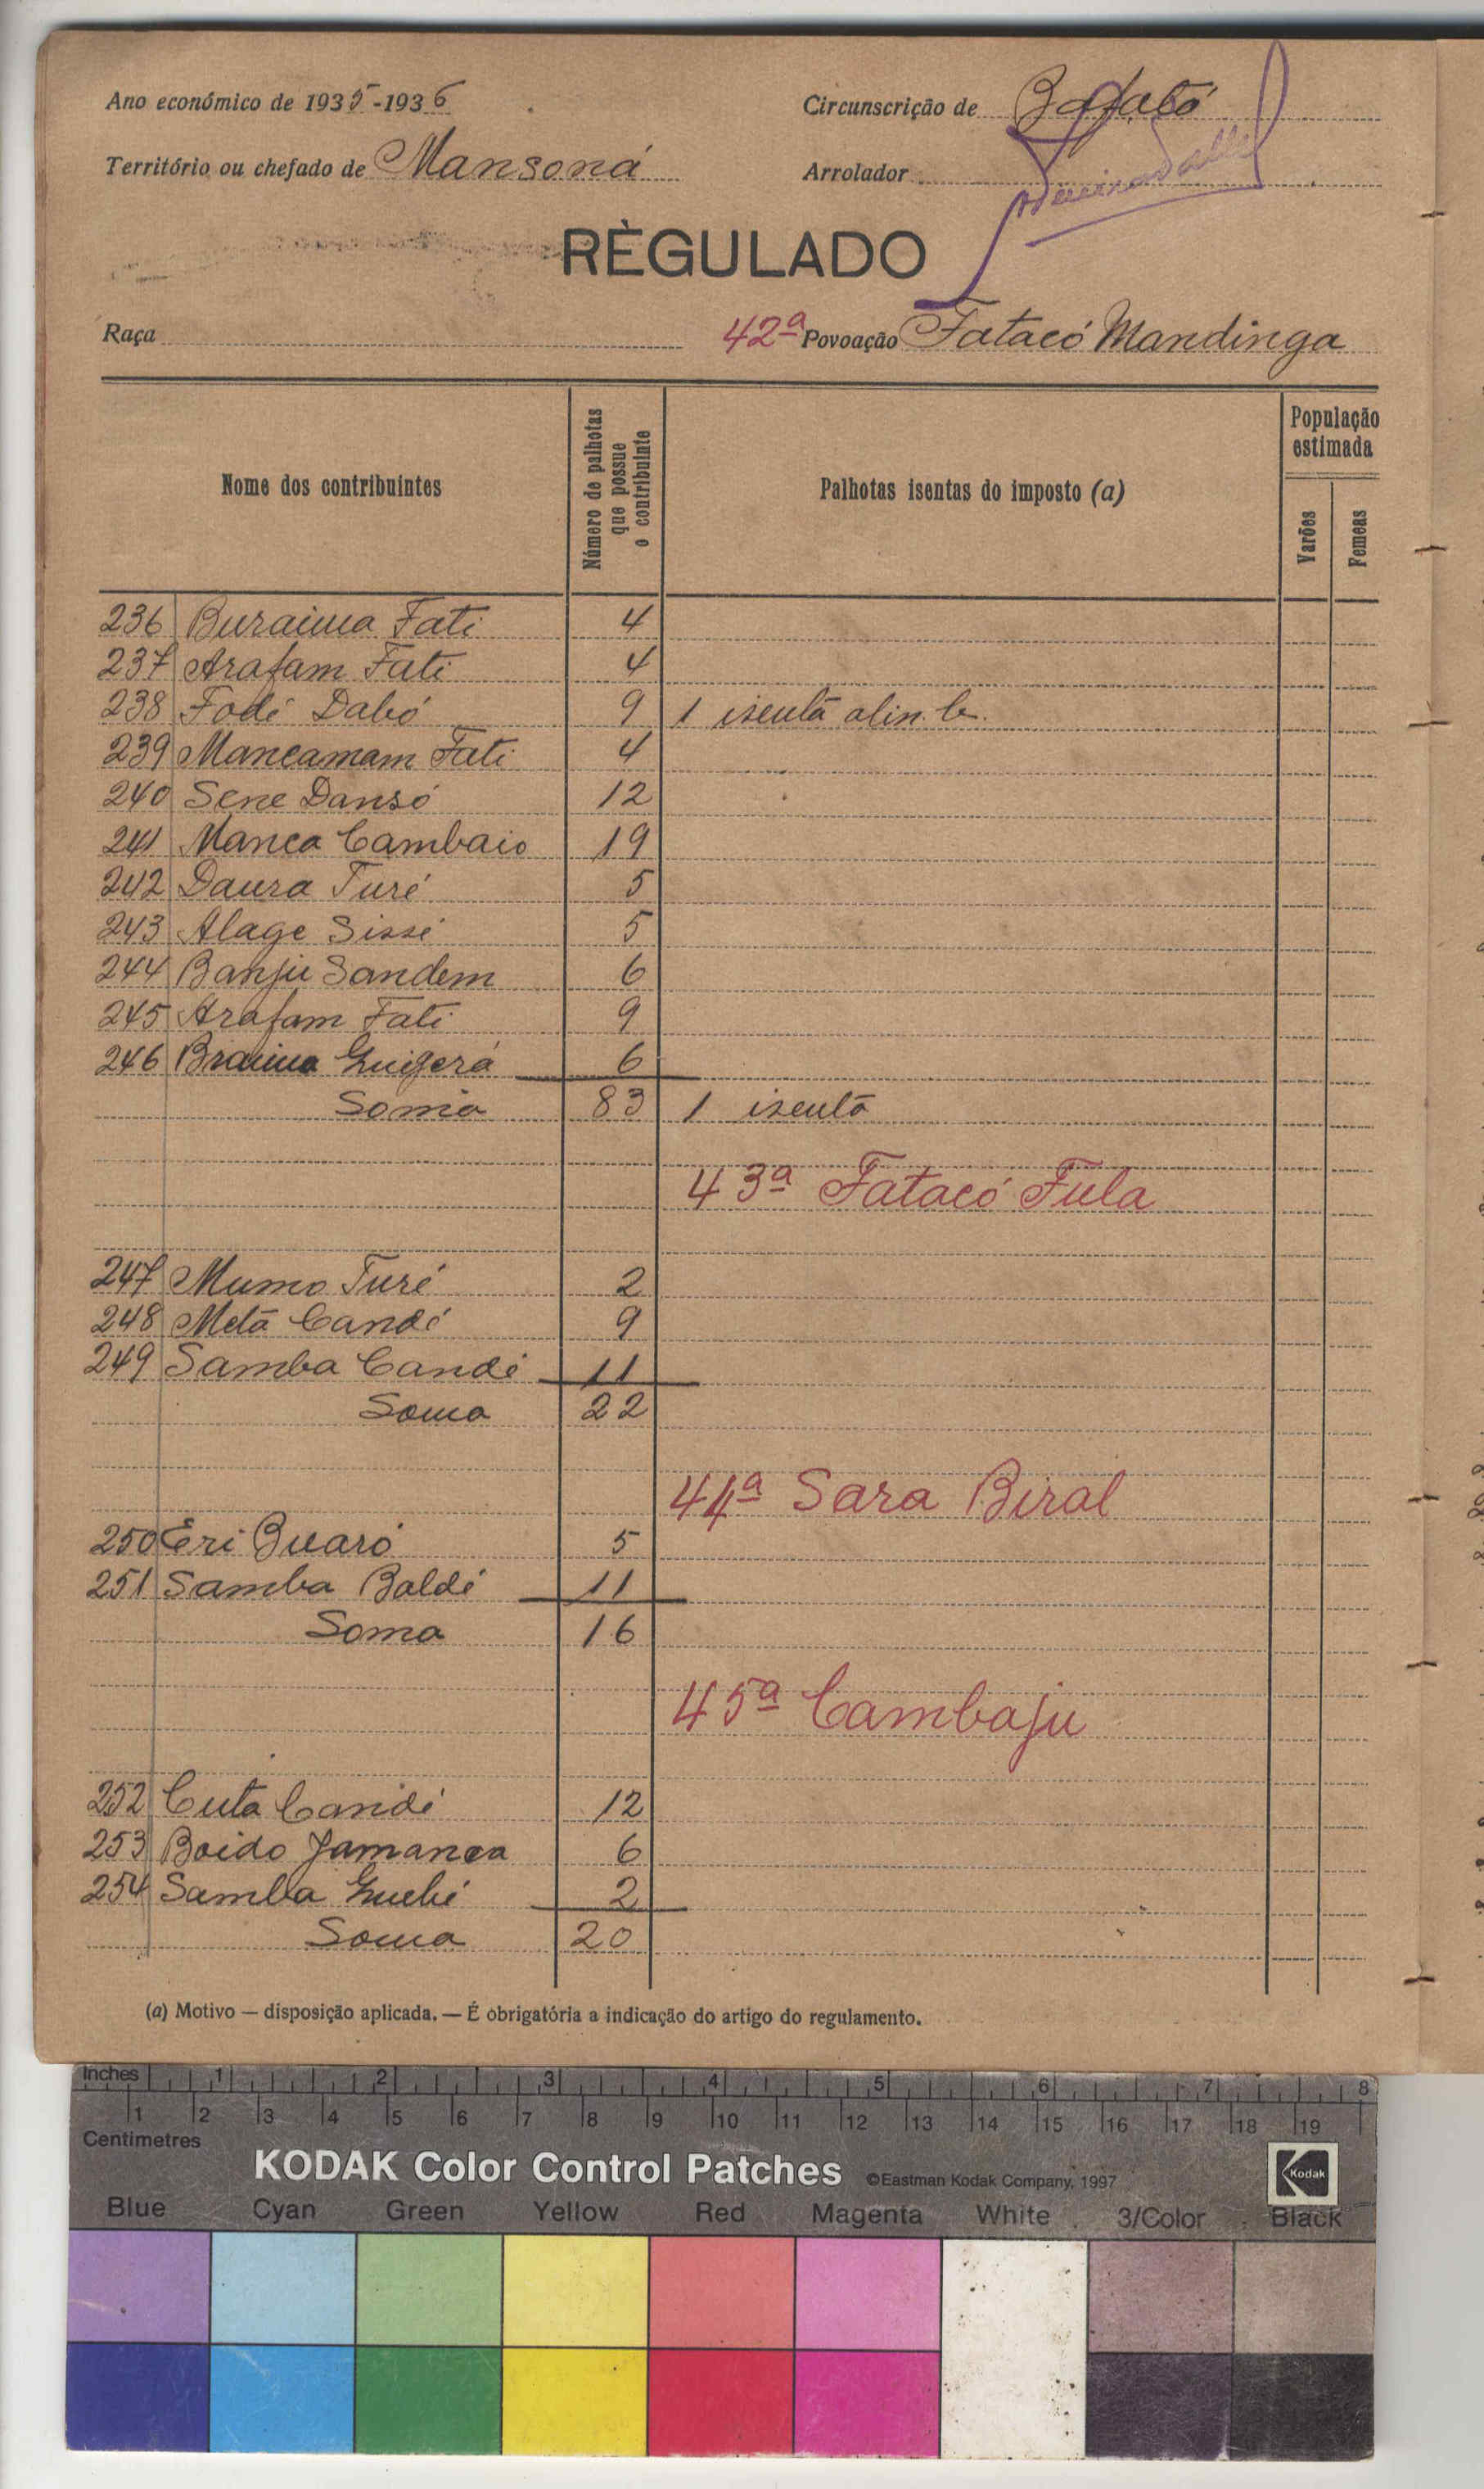 Ano económico de 1935-1936
Circunscrição de Bafatá
Território ou chefado de Mansoná
Arrolador
RÈGULADO
Raça
42ª Povoação Fatacó Mandinga
Nome dos contribuintes
Número de palhotas que possue o contribuinte
Palhotas isentas do imposto (a)
População estimada
Varões
Femeas
236 Buraima Fati 4
237 Arafam Fati 4
238 Fodé Dabó 9 1 isenta alin. b.
239 Mancamam Fati 4
240 Sene Dansó 12
241 Manca Cambaio 19
242 Daura Turé 5
243 Alage Sissé 5
244 Banju Sandem 6
245 Arafam Fati 9
246 Braima Guigerá 6
Soma 83 1 isenta
43ª Fatacó Fula
247 Mumo Turé 2
248 Metá Candé 9
249 Samba Candé 11
Soma 22
44ª Sara Biral
250 Eri Buaró 5
251 Samba Baldé 11
Soma 16
45ª Cambaju
252 Cuta Candé 12
253 Boido Jamanca 6
254 Samba 2
Soma 20
(a) Motivo — disposição aplicada. — É obrigatória a indicação do artigo do regulamento.
Inches 1 2 3 4 5 6 7 8
1 2 3 4 5 6 7 8 9 10 11 12 13 14 15 16 17 18 19
Centimetres
KODAK Color Control Patches ©Eastman Kodak Company, 1997 Kodak
Blue Cyan Green Yellow Red Magenta White 3/Color Black